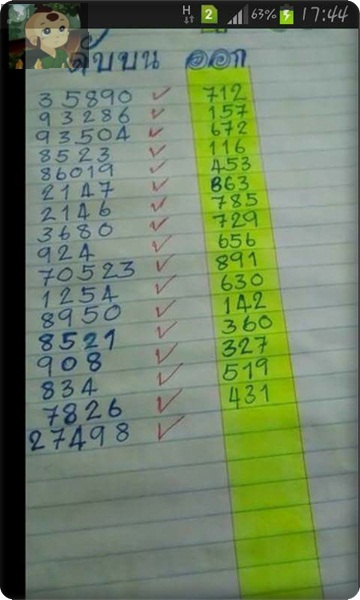 H 2 63% 17:44
ดับบน ออก
35890 ✓ 712
93286 ✓ 157
93504 ✓ 672
8523 ✓ 116
86019 ✓ 453
2147 ✓ 863
2146 ✓ 785
3680 ✓ 729
924 ✓ 656
70523 ✓ 891
1254 ✓ 630
8950 ✓ 142
8521 ✓ 360
908 ✓ 327
834 ✓ 519
7826 ✓ 431
27498 ✓